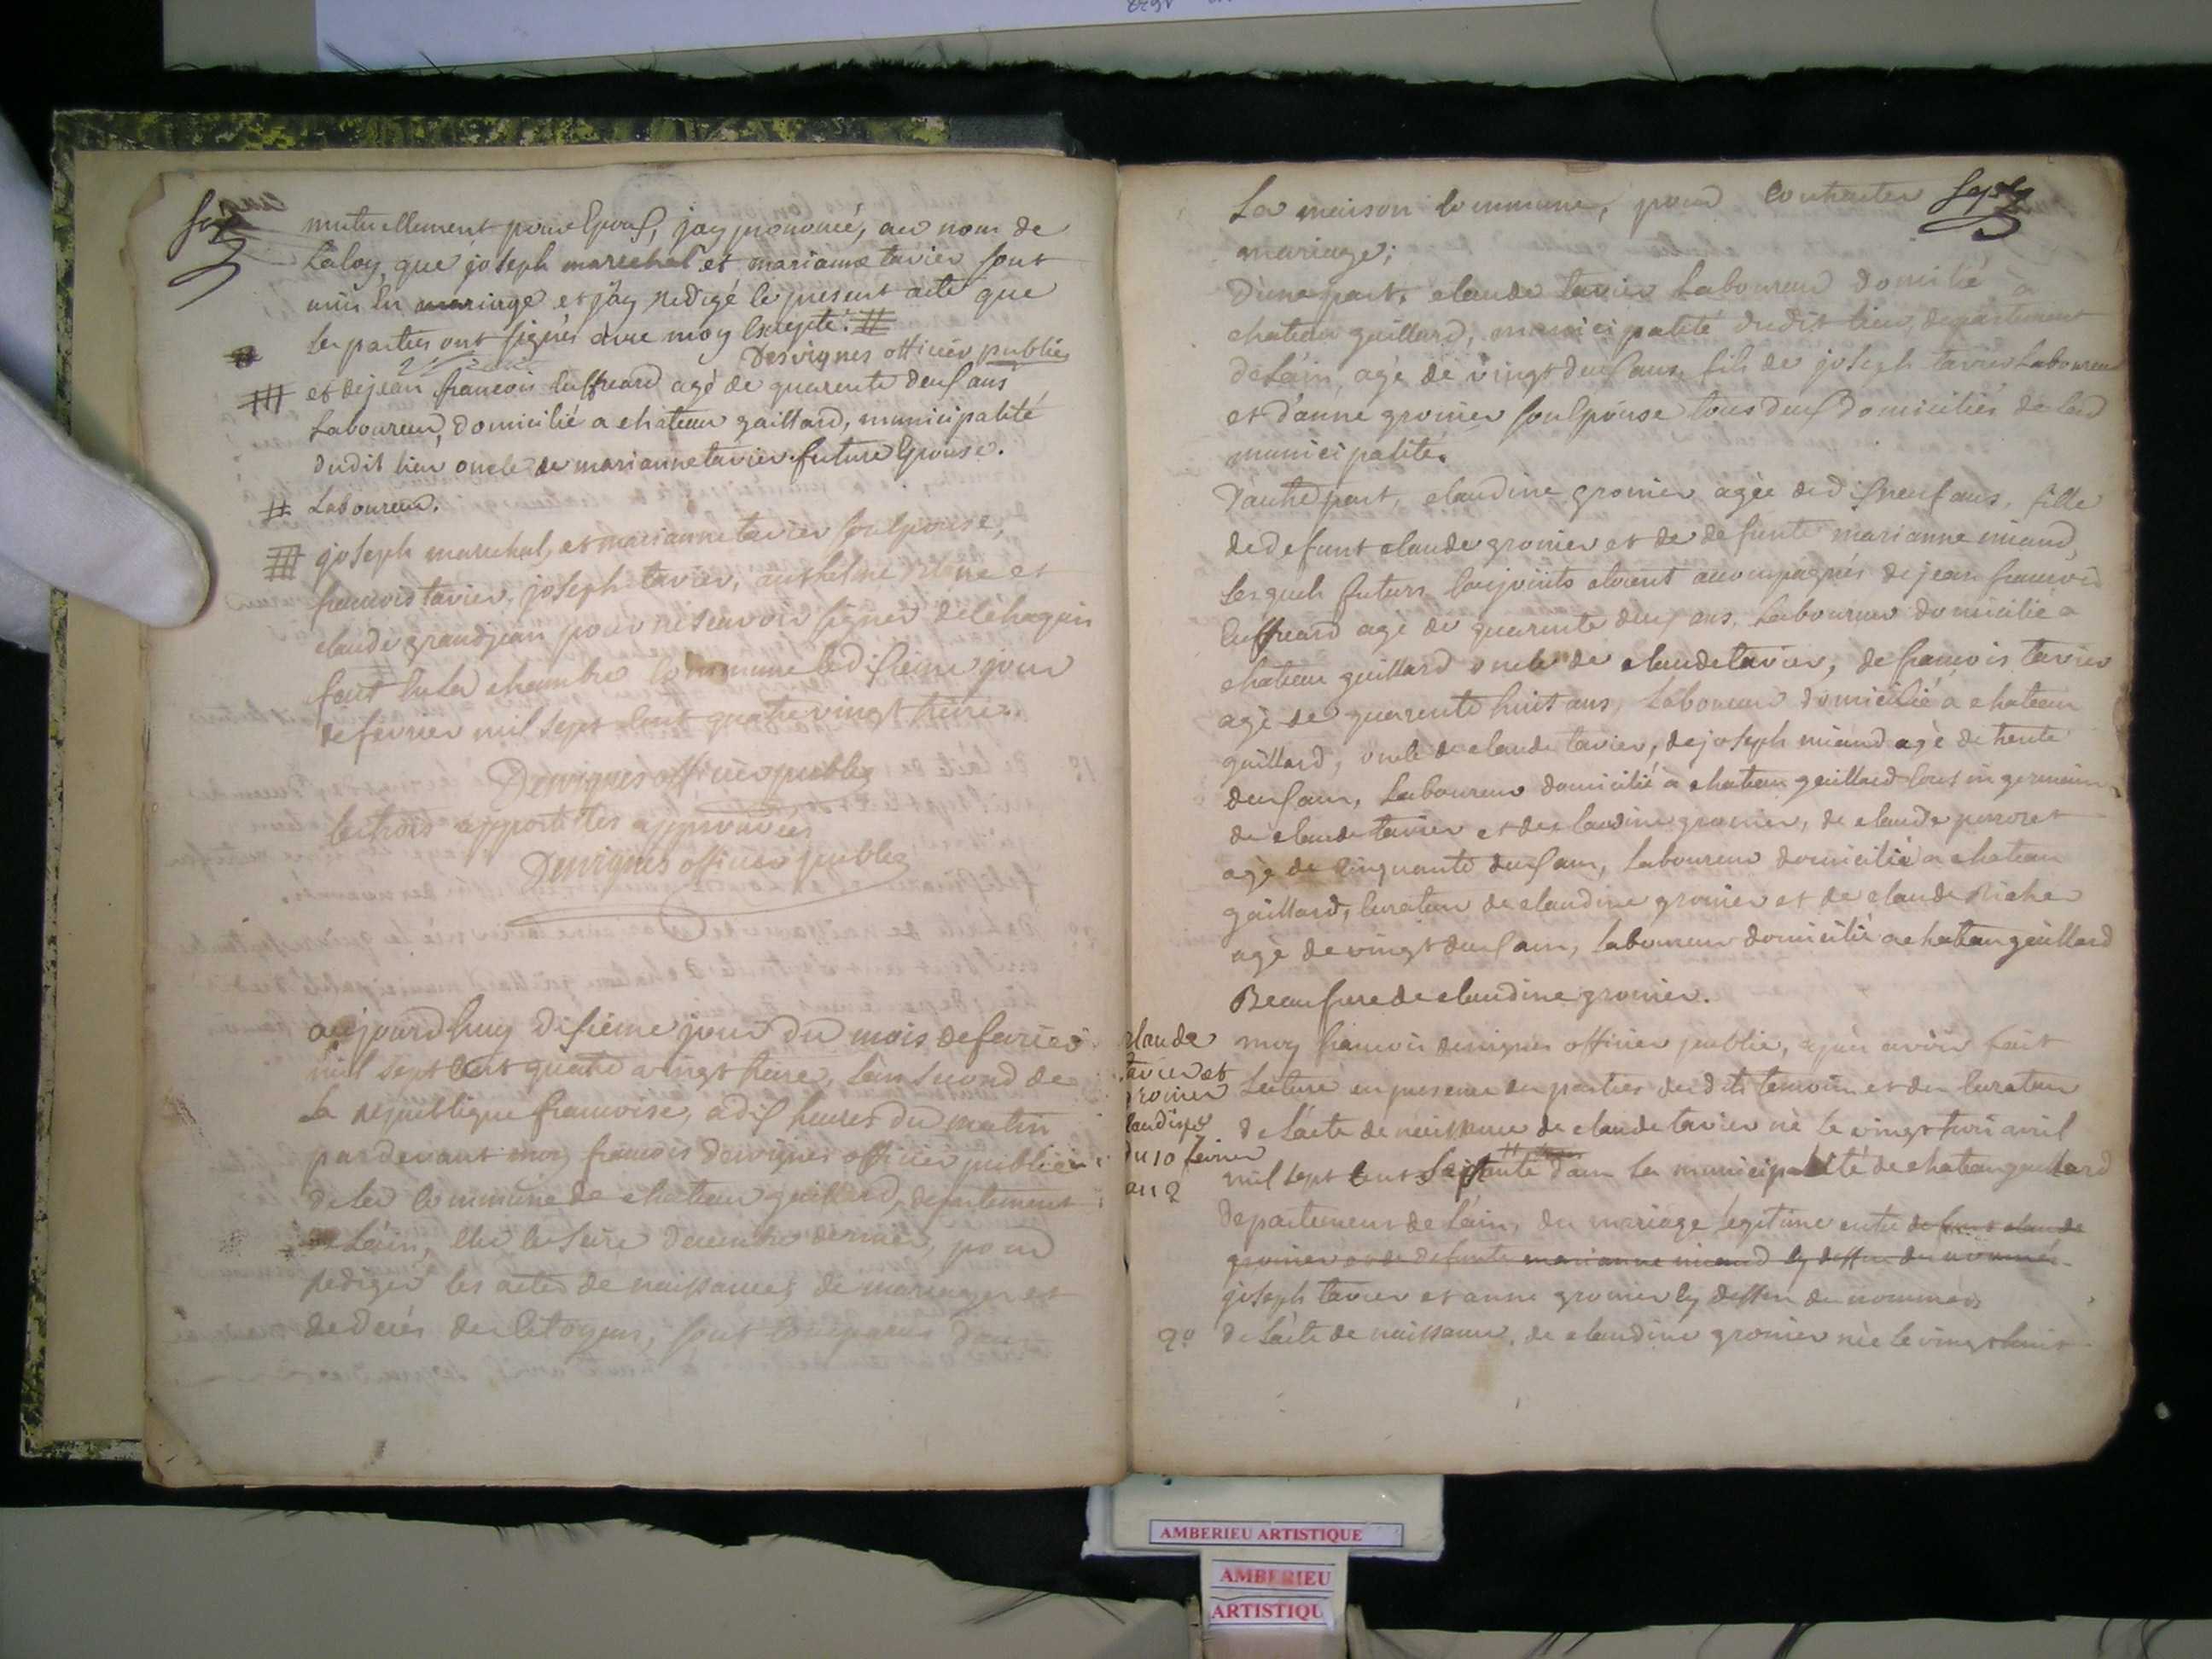 six
mutuellement pour Epoux, jay prononcé, au nom de
La loy que joseph marechal et marianne tavier sont
unis En mariage et j'ay redigé le present acte que
les parties ont signés avec moy Excepté. ##
Desvignes officier public
et de jean francois Cuffreard agé de quarente deux ans
Laboureur, domicilié a chateau gaillard, municipalité
dudit lieu oncle de marianne tavier future Epouse.
# Laboureur.
joseph marechal, et marianne tavier son Epouse,
francois tavier, joseph tavier, anthelme et
claude grandjean pour ne scavoir signer de ce
fait En la chambre Commune le dixieme jour
de fevrier mil sept Cent quatre vingt treize.
Desvignes officier public
les trois appostilles approuvées
Desvignes officier public
aujourdhuy dixieme jour du mois de fevrier
mil sept Cent quatre vingt treize, l'an second de
La republique francoise, a dix heures du matin
pardevant moy francois desvignes officier public
de la Commune de chateau gaillard, departement
de L'ain, Elu le seize decembre dernier, pour
rediger les actes de naissances, de mariages et
de decés des Citoyens, sont Comparus dans
sept
La maison Commune, pour Contracter
mariage;
D'une part, claude tavier Laboureur domicilié à
chateau gaillard, municipalité dudit lieu, departement
de L'ain, agé de vingt deux ans, fils de joseph tavier Laboureur
et d'anne gronier son Epouse tous deux domiciliés de lad
municipalité.
D'autre part, claudine gronier agée de dix neuf ans, fille
de defunt claude gronier et de defunte marianne miand,
Lesquels futurs Conjoints etoient accompagnés de jean francois
Cuffreard agé de quarente deux ans, Laboureur domicilié a
chateau gaillard oncle de claude tavier, de francois tavier
agé de quarente huit ans, Laboureur domicilié a chateau
gaillard, oncle de claude tavier, de joseph miand agé de trente
deux ans, Laboureur domicilié a chateau gaillard Cousin germain
de claude tavier et de claudine gronier, de claude perroret
agé de Cinquante deux ans, Laboureur domicilié a chateau
gaillard, Curateur de claudine gronier et de claude Richer
agé de vingt deux ans, laboureur domicilié a chateau gaillard
Beaufrere de claudine gronier.
claude
tavier et
gronier
claudine
du 10 fevrier
an 2
moy francois desvignes officier public, apres avoir fait
Lecture en presence des parties desdits temoins et du Curateur
de L'acte de naissance de claude tavier né le vingt trois avril
mil sept Cent Soixante dans La municipalité de chateau gaillard
departement de L'ain, du mariage legitime entre defunt claude
gronier et de defunte marianne miand cy dessus denommés
joseph tavier et anne gronier cy dessus denommés
2º de L'acte de naissance, de claudine gronier née le vingt huit
AMBERIEU ARTISTIQUE
AMBERIEU
ARTISTIQU